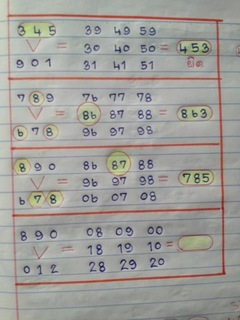 3 4 5 39 49 59
= 30 40 50 = 453
9 0 1 31 41 51
7 8 9 76 77 78
= 86 87 88 = 863
6 7 8 96 97 98
8 9 0 86 87 88
= 96 97 98 = 785
6 7 8 06 07 08
8 9 0 08 09 00
= 18 19 10 =
0 1 2 28 29 20